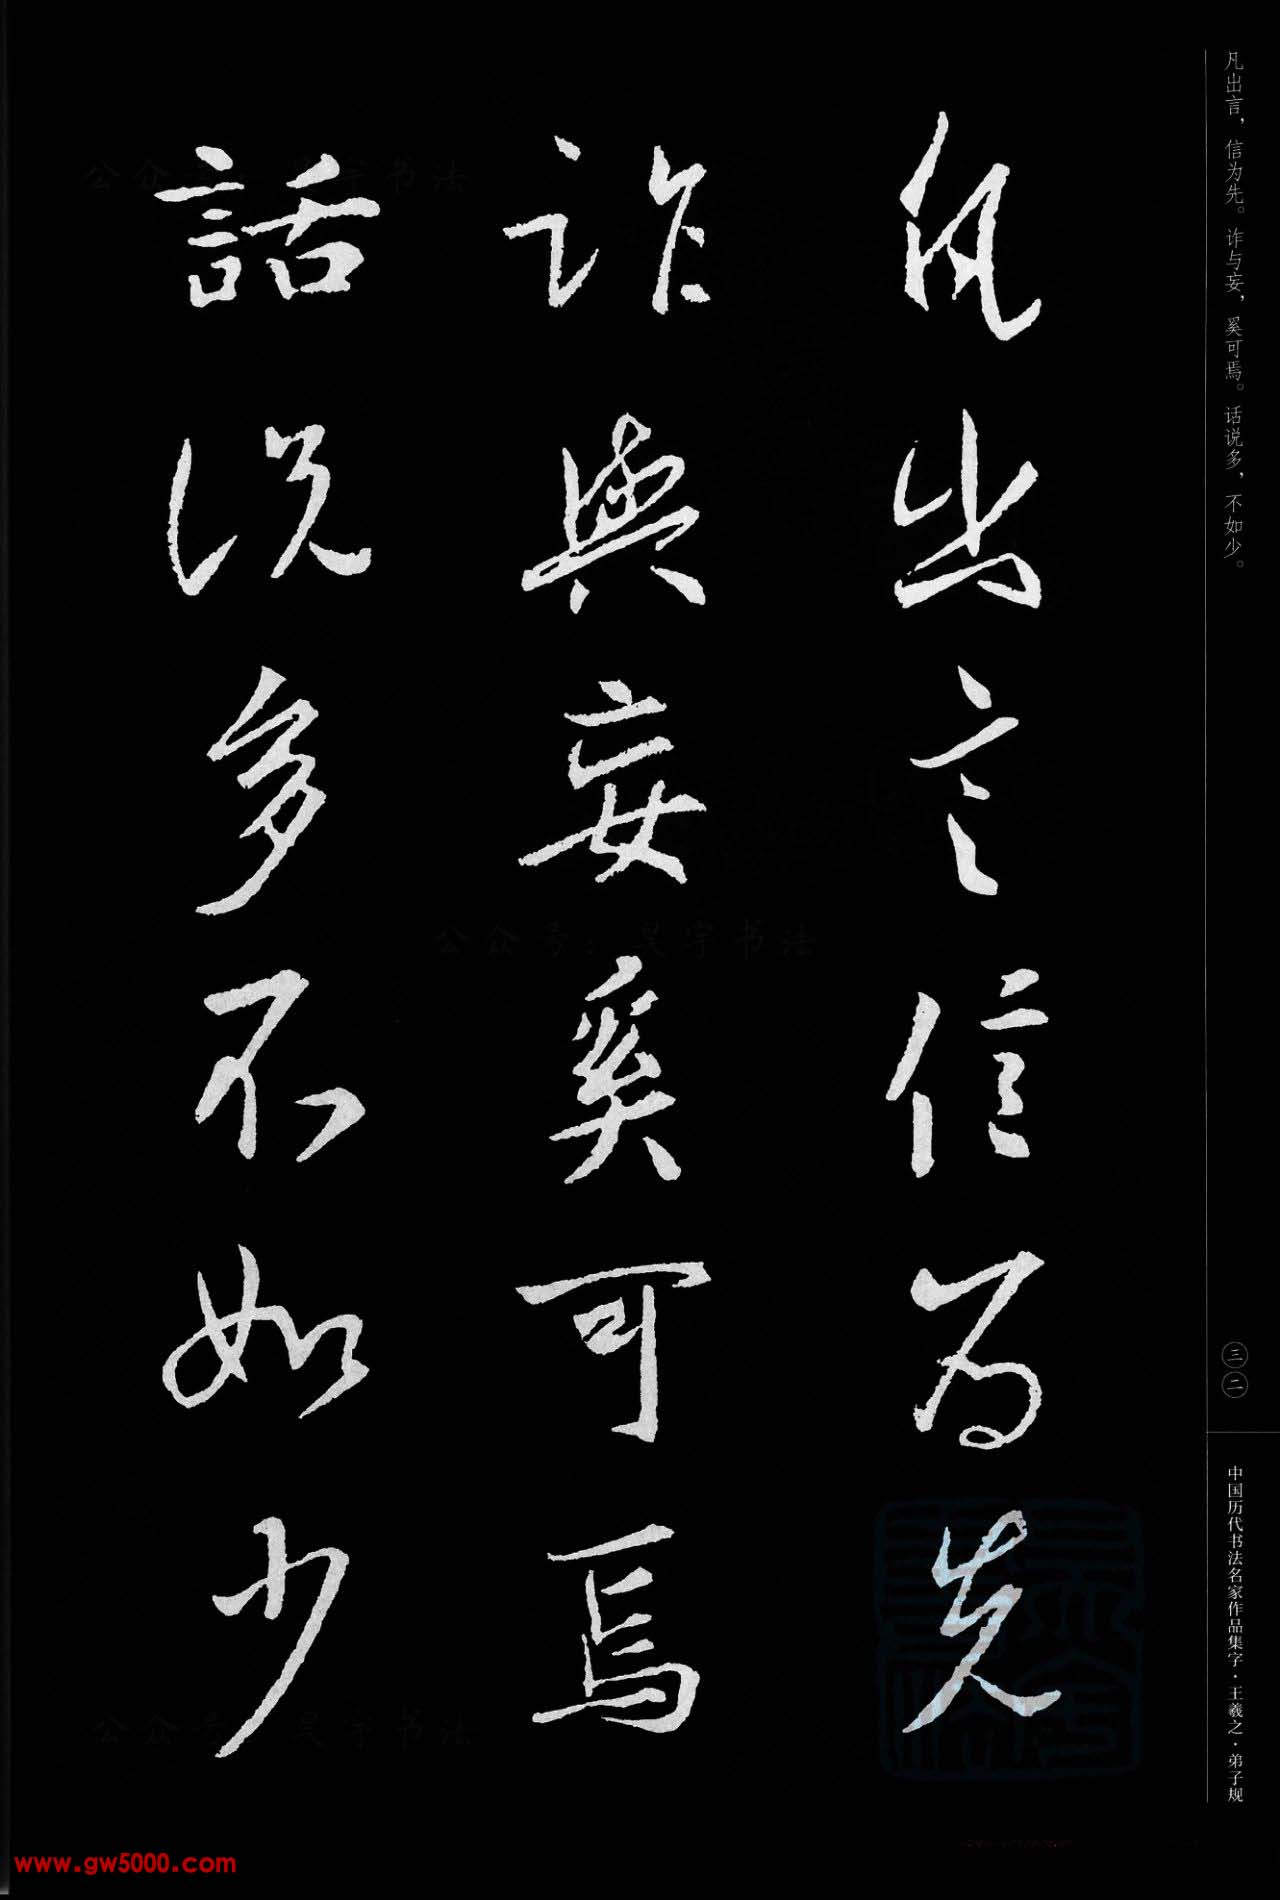 凡出言，信为先。诈与妄，奚可焉。话说多，不如少。
凡出言信为先
詐與妄奚可焉
話说多不如少
三二
中国历代书法名家作品集字·王羲之·弟子规
公众号：吴宇书法
公众号：吴宇书法
公众号：吴宇书法
www.gw5000.com